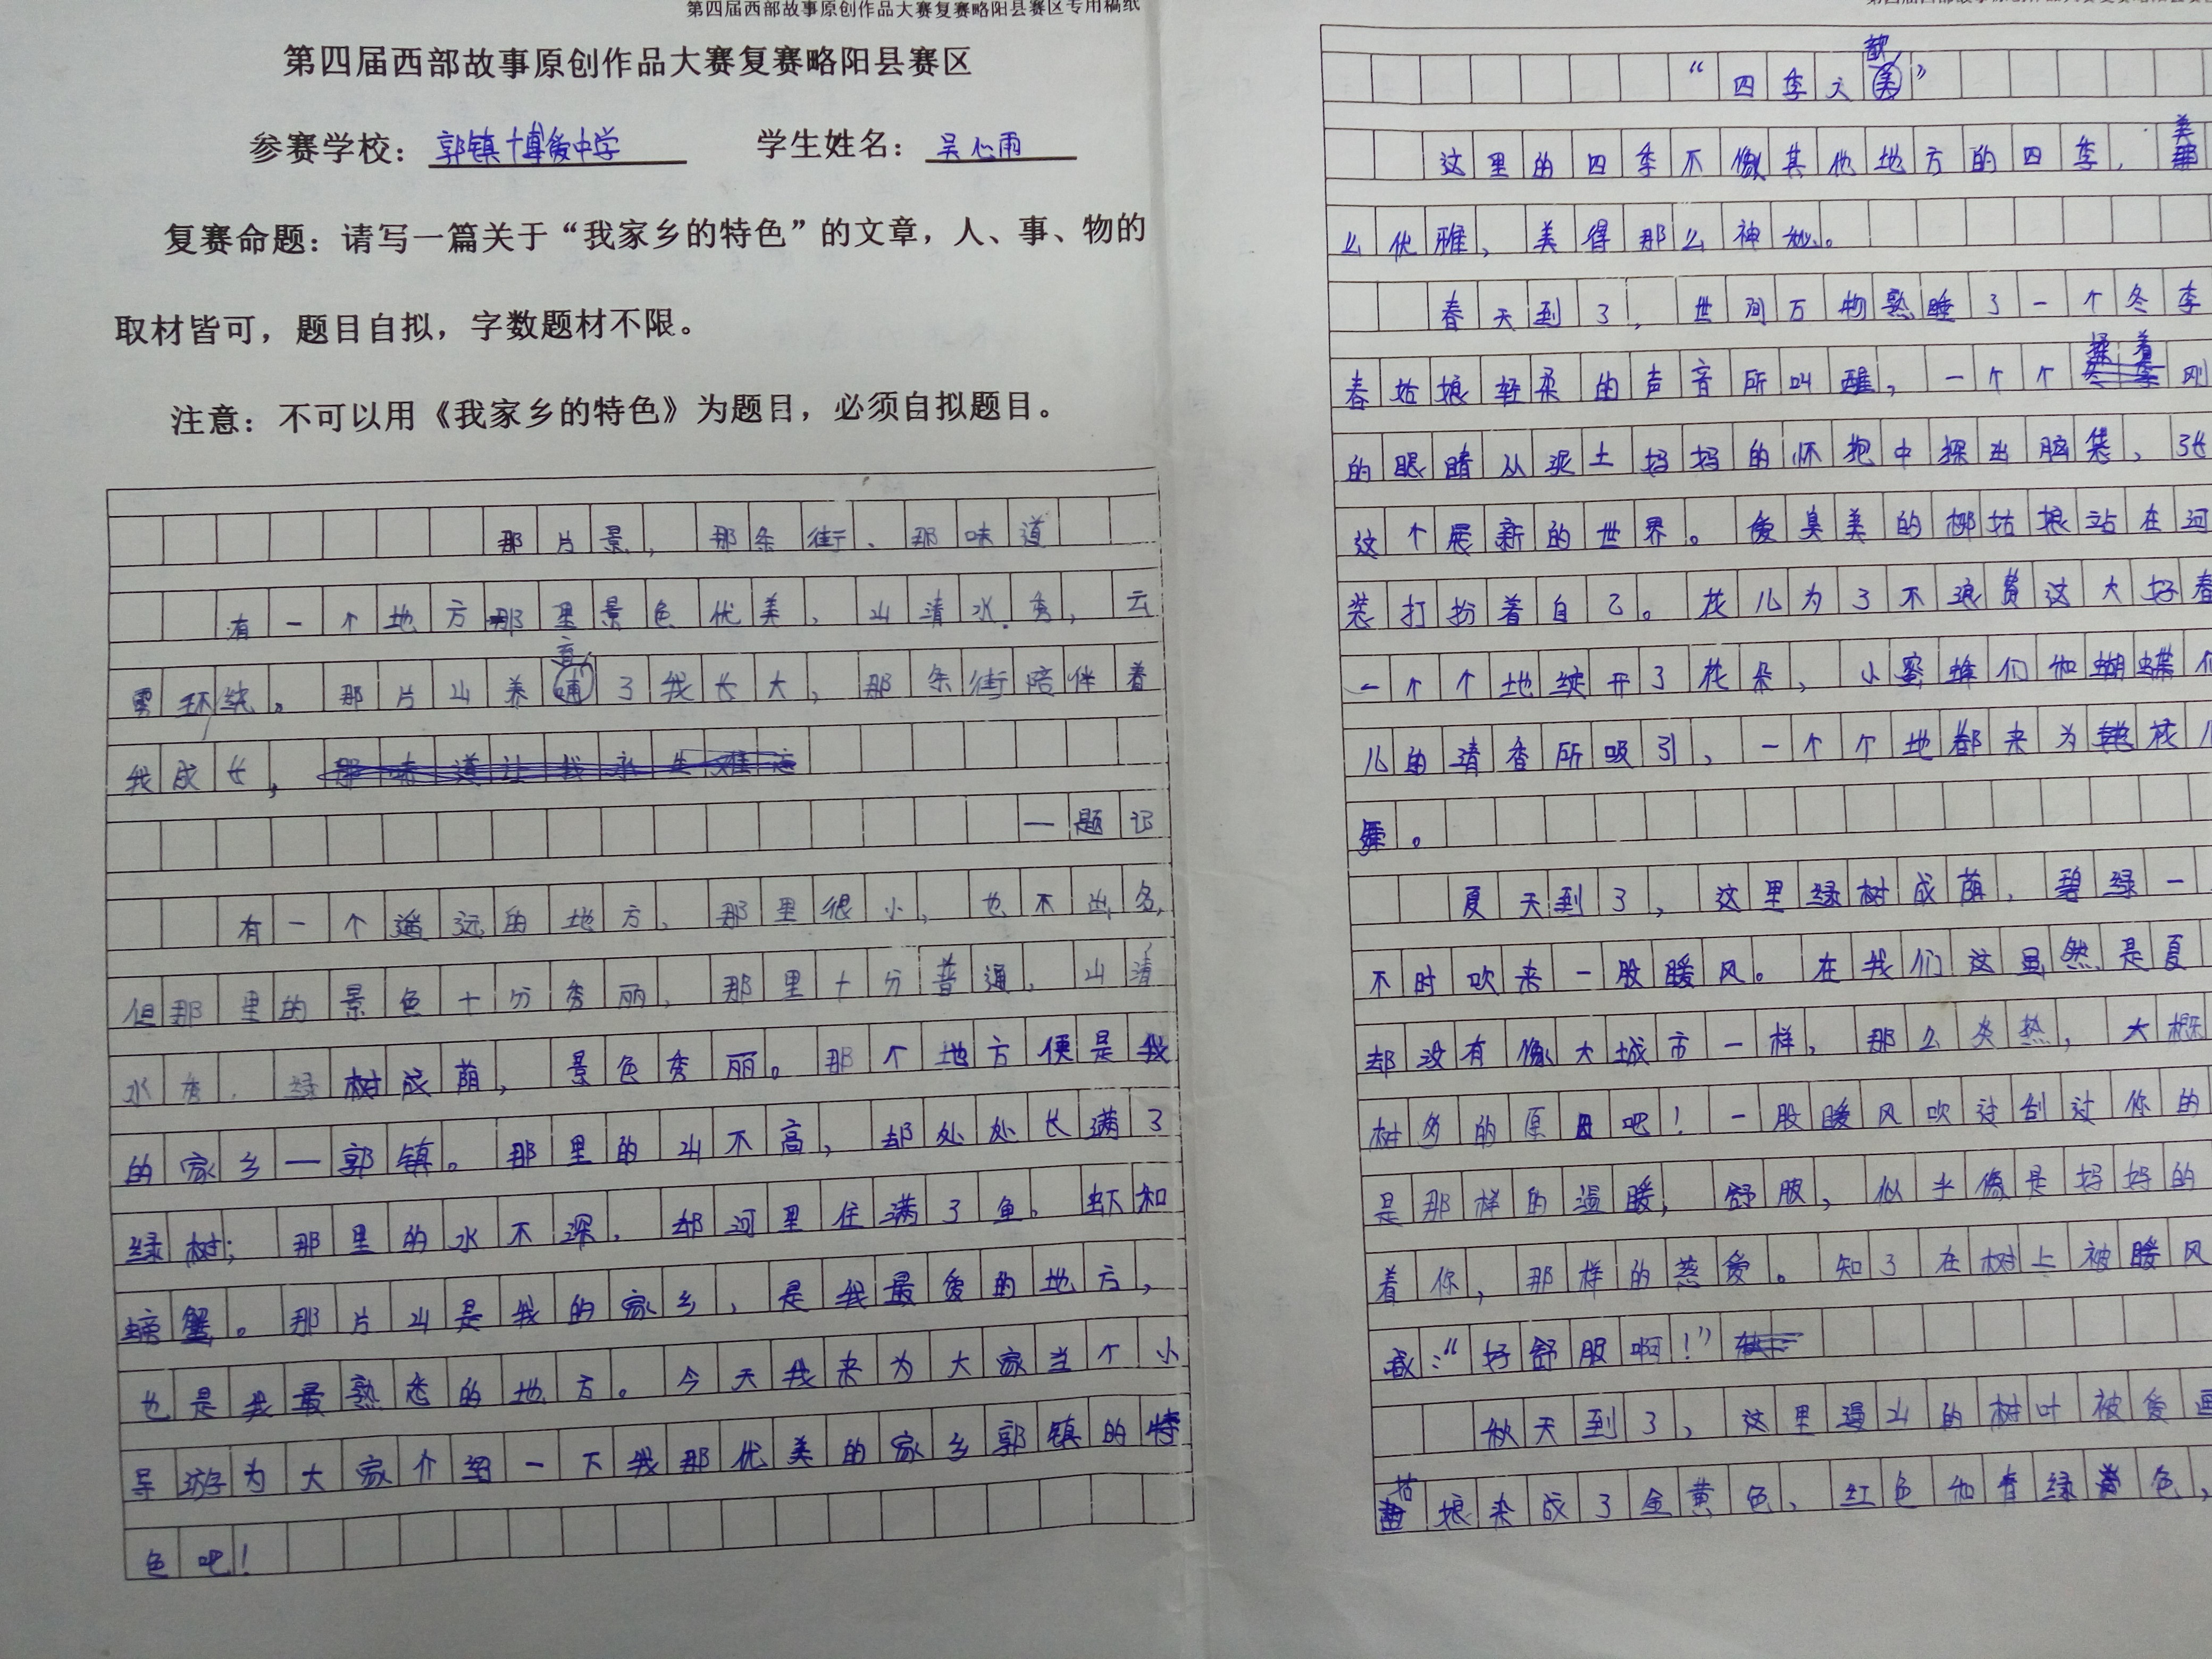 第四届西部故事原创作品大赛复赛略阳县赛区专用稿纸
第四届西部故事原创作品大赛复赛略阳县赛区
参赛学校：郭镇博爱中学 学生姓名：吴心雨
复赛命题：请写一篇关于“我家乡的特色”的文章，人、事、物的
取材皆可，题目自拟，字数题材不限。
注意：不可以用《我家乡的特色》为题目，必须自拟题目。
那片景，那条街、那味道
有一个地方那里景色优美，山清水秀，云
雾环绕。那片山养育了我长大，那条街陪伴着
我成长，那味道让我永生难忘
—题记
有一个遥远的地方，那里很小，也不出名，
但那里的景色十分秀丽，那里十分普通，山清
水秀，绿树成荫，景色秀丽。那个地方便是我
的家乡—郭镇。那里的山不高，却处处长满了
绿树；那里的水不深，却河里住满了鱼、虾和
螃蟹。那片山是我的家乡，是我最爱的地方，
也是我最熟悉的地方。今天我来为大家当个小
导游为大家介绍一下我那优美的家乡郭镇的特
色吧！
“四季之歌”
这里的四季不像其他地方的四季，美那
么优雅，美得那么神妙。
春天到了，世间万物熟睡了一个冬季
春姑娘轻柔的声音所叫醒，一个个揉着刚
的眼睛从泥土妈妈的怀抱中探出脑袋，张
这个展新的世界。爱臭美的柳姑娘站在河
装打扮着自己。花儿为了不浪费这大好春
一个个地绽开了花朵，小蜜蜂们和蝴蝶们
儿的清香所吸引，一个个地都来为花儿
舞。
夏天到了，这里绿树成荫，碧绿一
不时吹来一股暖风。在我们这虽然是夏
却没有像大城市一样，那么炎热，大概
树多的原因吧！一股暖风吹过刮过你的
是那样的温暖，舒服，似乎像是妈妈的
着你，那样的慈爱。知了在树上被暖风
喊：“好舒服啊！”
秋天到了，这里漫山的树叶被爱画
姑娘染成了金黄色、红色和青绿色，